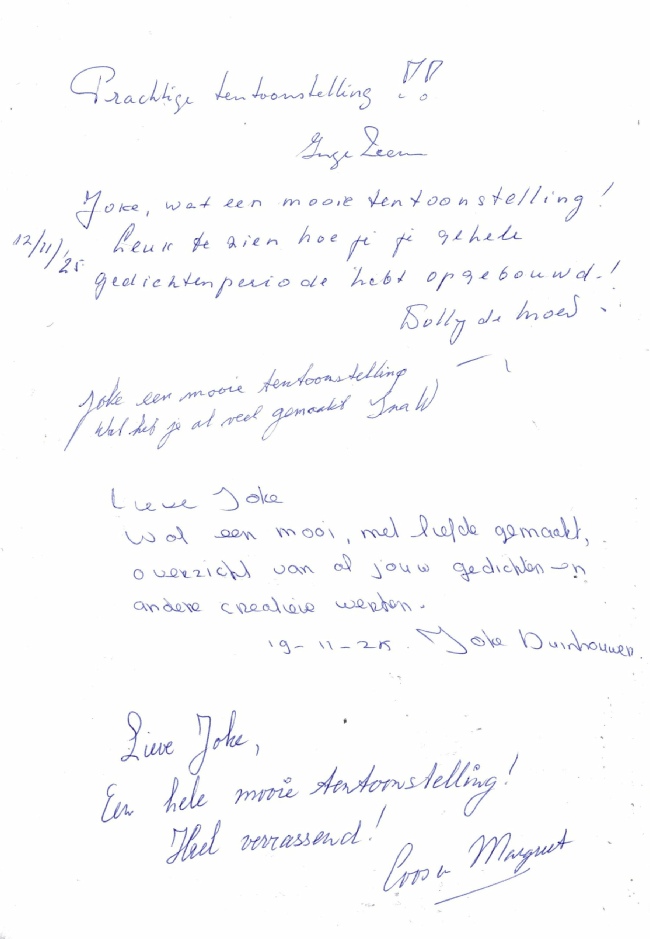 Prachtige tentoonstelling !!
Inge
Joke, wat een mooie tentoonstelling!
12/11/'25 Leuk te zien hoe je je gehele
gedichtenperiode hebt opgebouwd.!
Dolly de
Joke een mooie tentoonstelling
Wat heb je al veel gemaakt Ina W
Lieve Joke
Wat een mooi, met liefde gemaakt,
overzicht van al jouw gedichten en
andere creatieve werken.
19-11-25. Joke Duinhouwer
Lieve Joke,
Een hele mooie tentoonstelling!
Heel verrassend!
Margreet